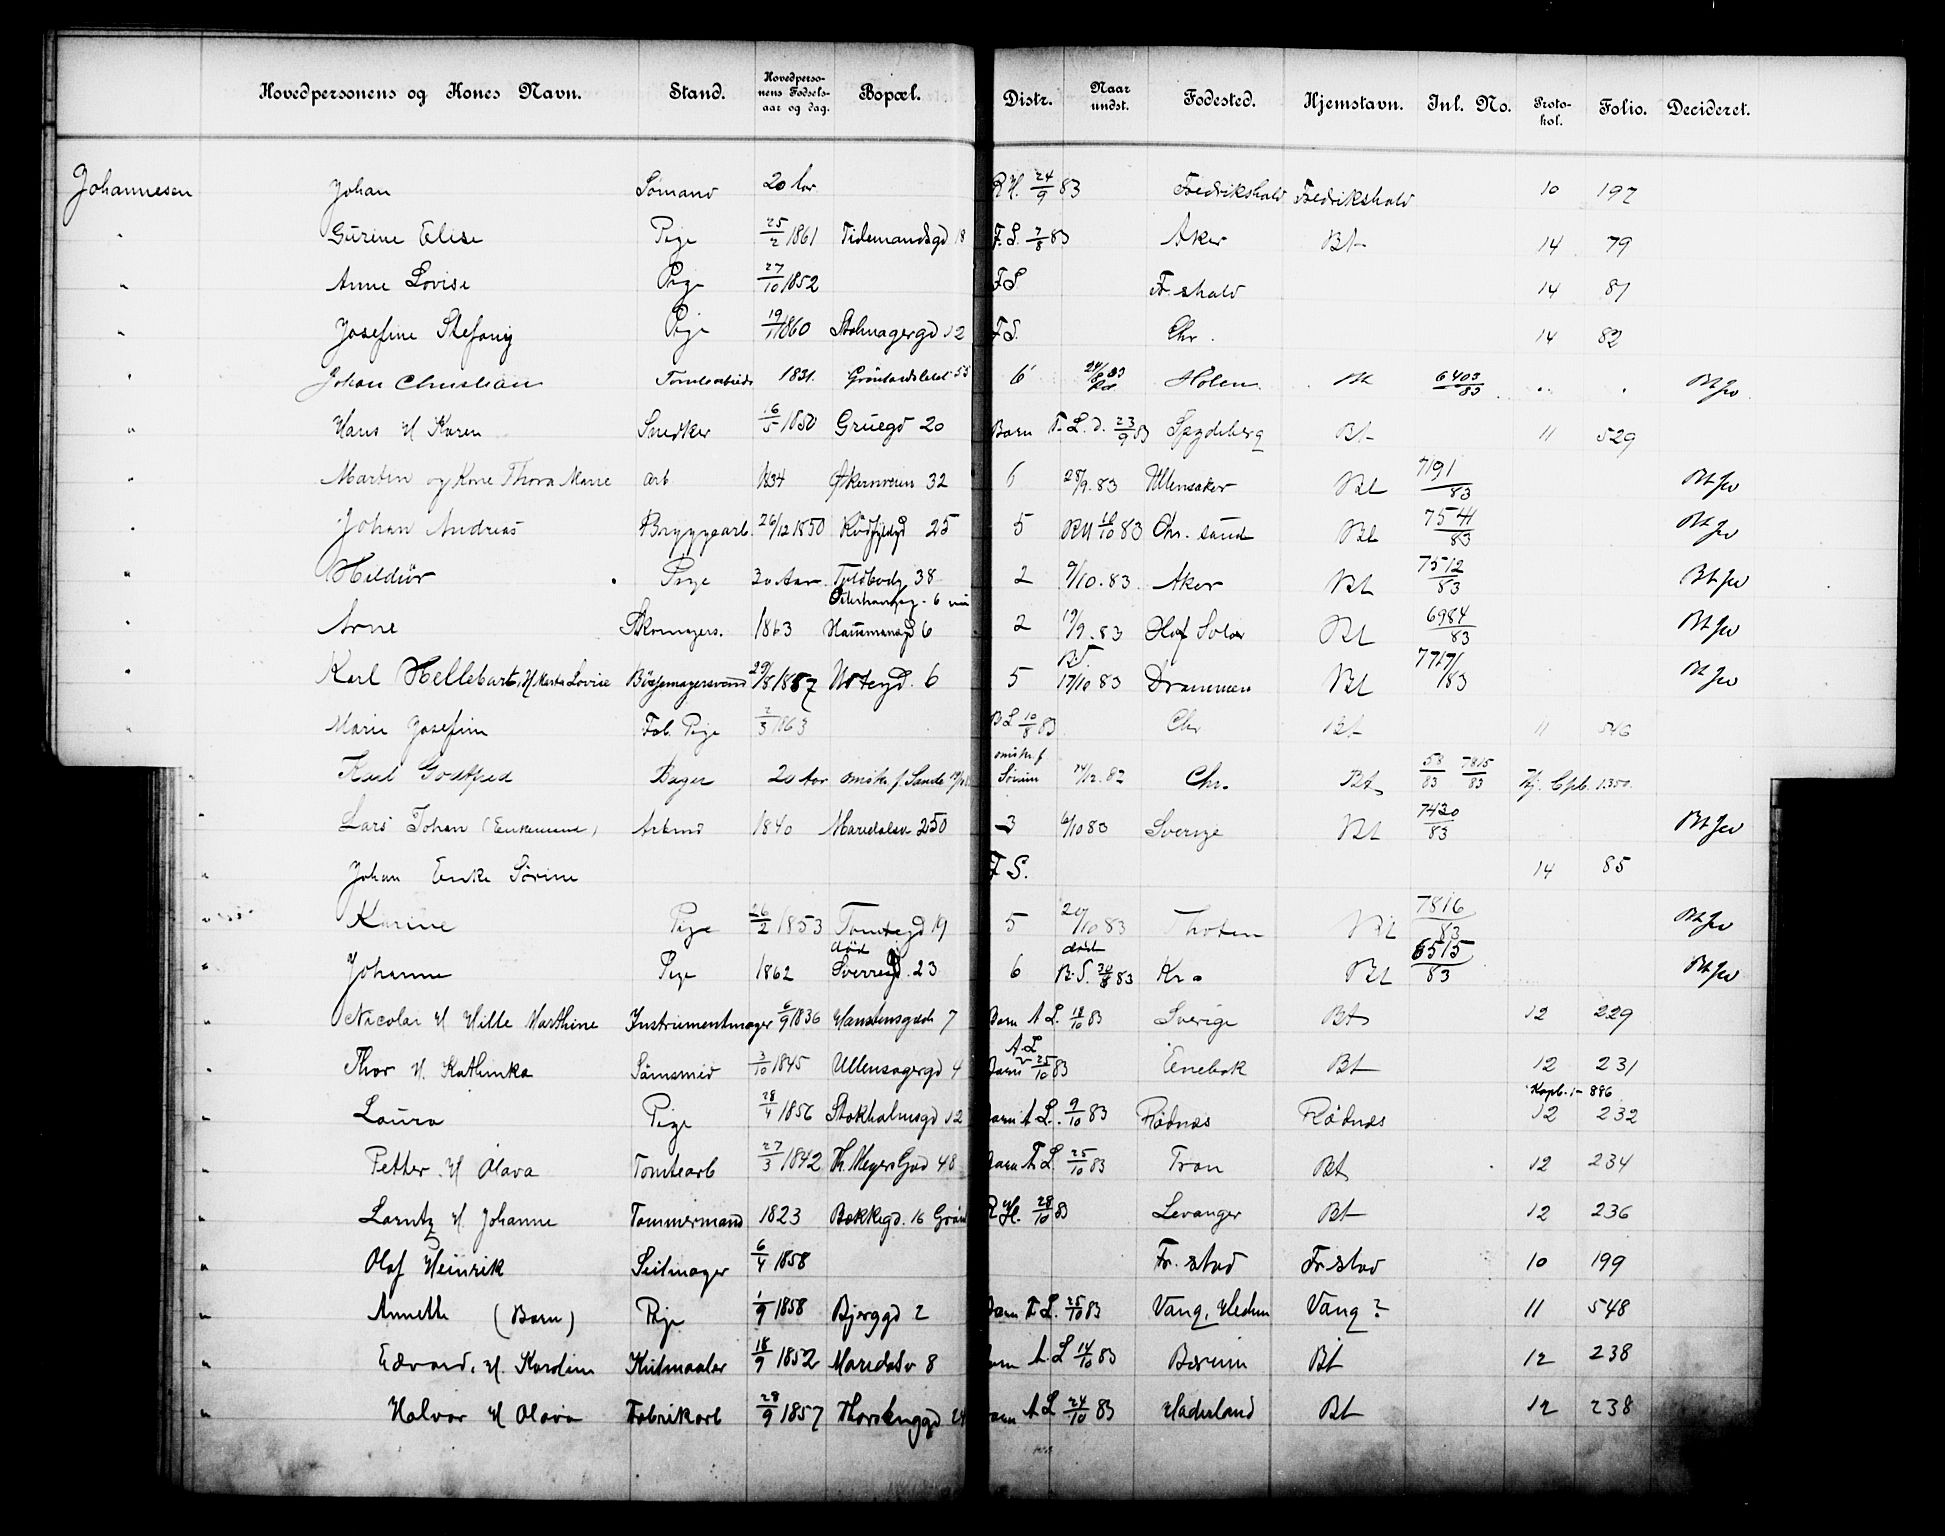 Hovedpersonens og Kones Navn. Stand. Hovedpersonens Fødselsaar og dag. Bopæl. Distr. Naar undst. Fødested. Hjemstavn. Inl. No. Protokol. Folio. Decideret.
Johannesen Johan Sømand 20 aar R.H. 24/9 83 Fredrikshald Fredrikshald 10 197
" Gurine Elise Pige 25/2 1861 Tidemandsgd 18 F.S. 7/8 83 Aker Bt 14 79
" Anne Lovise Pige 27/10 1852 F.S. Fr. shald 14 81
" Josefine Stefany Pige 1860 12 F.S. Chr. 14 82
" Johan Christian Tomtearbeid 1831. 55 6 Holen Bt 6403/83 " " Bt jvo
" Hans H Karen Snedker 16/5 1850 Gruegd 20 Barn F.L.d. 23/9 83 Spydeberg Bt 11 529
" Martin og Kone Thora Marie arb. 1834 Akersveien 32 6 28/9.83 Ullensaker Bt 7191/83 Bt jvo
" Johan Andreas Bryggearb. 26/12 1850 25 5 RH 10/10 83 Chr. sand Bt 7541/83 Bt jvo
" Heldiør Pige 30 Aar Toldbodg 38 2 9/10.83. Aker Bt 7512/83 Bt jvo
" Arne Skomagers. 1863 Hausmansgd 6 2 19/9.83 Hof Solør Bt 6984/83 Bt jvo
" Karl Hellebart, H Marta Lovise Bøssemagersvend 29/8 1857 6 5 B.S. 17/10 83 Drammen Bt 7717/83 Bt jvo
" Marie Josefine Fab. Pige 2/3 1863 B L 10/8 83 Chr Bt 11 546
" Karl Godtfred Bager 20 Aar ønsk. f. Sande ønsk. f. Sørum 24/12.82 Chr. Bt 58/83 7815/83 Kj. Cpb. 1.350.
" Lars Johan (Enkemand) Arbmd 1840 Maridalsv 250 3 6/10 83 Sverige Bt 7430/83 Bt jvo
" Johan Enke Sørine F.S. 14 85
" Karine Pige 26/2 1853 Tomtegd 19 5 20/10 83 Thoten Bt 7816/83 Bt jvo
" Johanne Pige 1862 død Sverresgd. 23 6 død B.S. 83 Kr a Bt 6515/83 Bt jvo
" Nicolai H Hille Marthine Instrumentmager 6/9 1836 7 Barn A L. 18/10 83 Sverige Bt 12 229
" Thor H. Kathinka Sømsmed 3/10 1845 Ullensagergd 4 Barn A.L 25/10 83 Enebak Bt 12 231
" Laura Pige 28/4 1856 Stokholmsgd 12 Barn A L. 9/10 83 Rødnæs Rødnæs Kopb. 1- 886 12 232
" Petter H Olava Tomtearb 27/3 1842 Th. Meyers Gad 48 Barn A L. 25/10 83 Tron Bt 12 234
" Larntz H. Johanne Tømmermand 1823 Bakkegd. 16 Grønl R.H. 28/10 83 Levanger Bt 12 236
" Olaf Heinrik Seilmager 6/4 1858 Fr. stad Fr. stad 10 199
" Annette (Barn) Pige 1/9 1858 Bjerggd 2 Barn F.L. 25/10 83 Vang, Hedem Vang? 11 548
" Edvard, H. Karoline 18/9 1852 Maridalsv 8 Barn A.L 14/10 83 Bærum Bt 12 238
" Halvor H Olava Fabrikarb 28/9 1857 24 Barn A L 24/10 83 Hadeland Bt 12 238